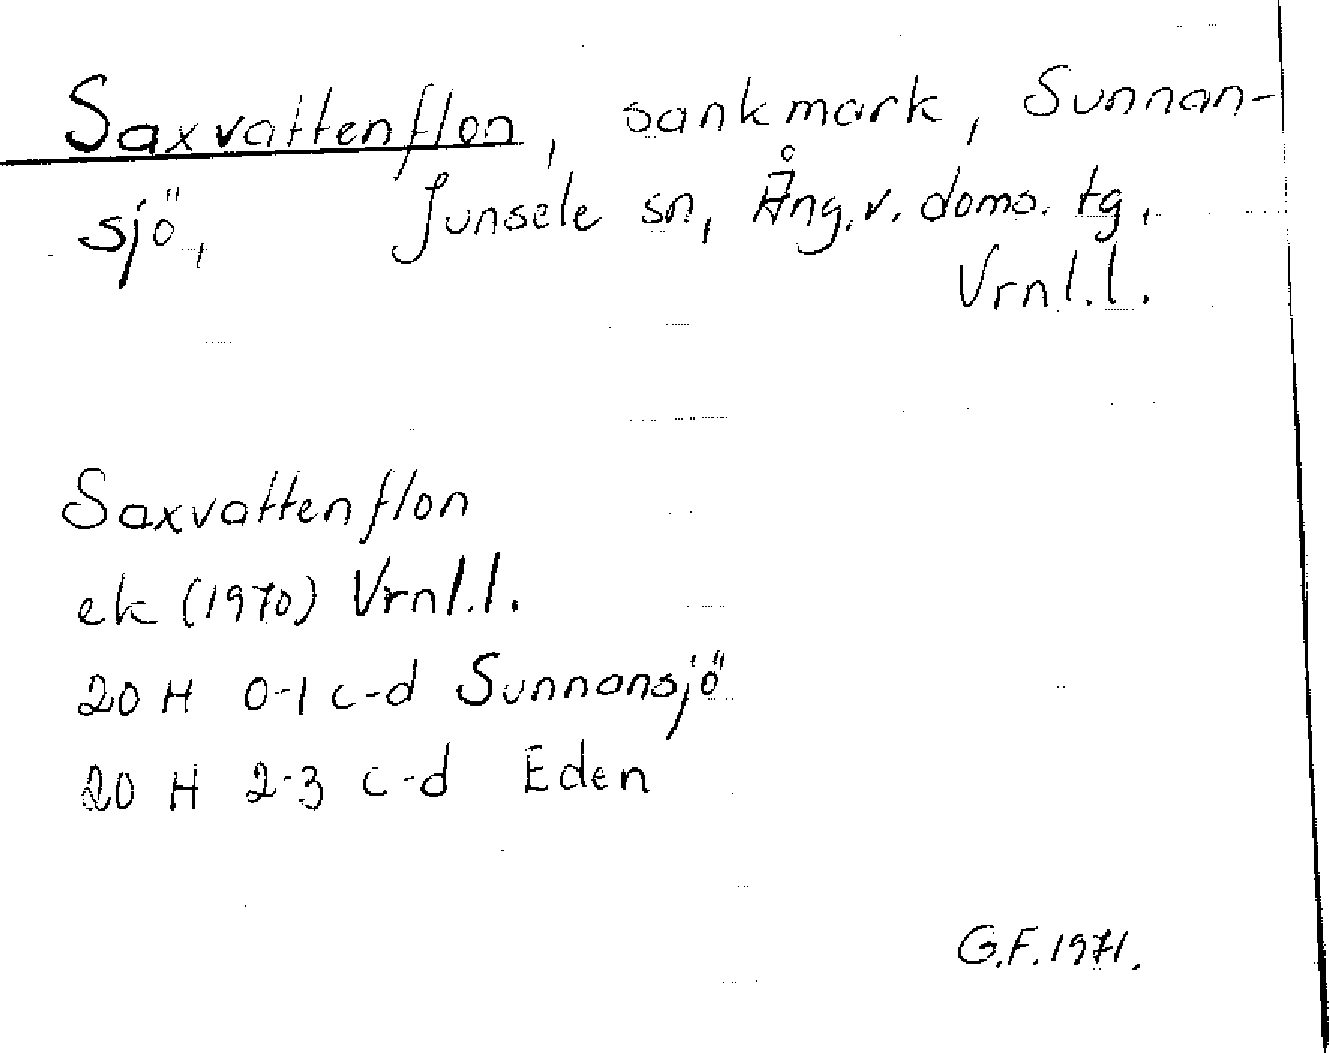 Saxvattenflon, sankmark, Sunnan-
sjö, Junsele sn, Ång.v. doms. tg.
Vrnl.l.
Saxvattenflon
ek (1970) Vrnl.l.
20 H 0-1 c-d Sunnansjö
20 H 2-3 c-d Eden
G.F. 1971.